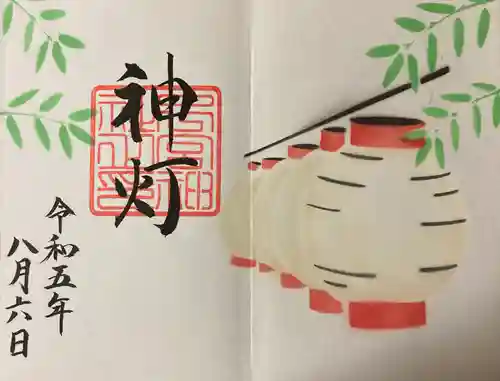 神灯
令和五年
八月六日